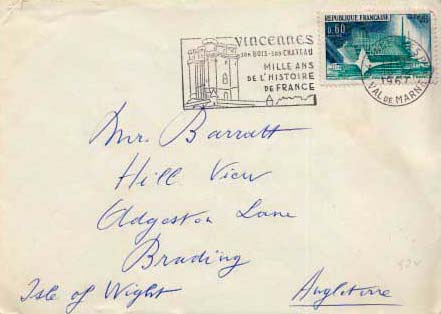 VINCENNES
son BOIS - son CHATEAU
MILLE ANS
DE L'HISTOIRE
DE FRANCE
REPUBLIQUE FRANÇAISE
0,60
1967
VAL DE MARNE
Mr. Barratt
Hill View
Adgeston Lane
Brading
Isle of Wight
Angleterre